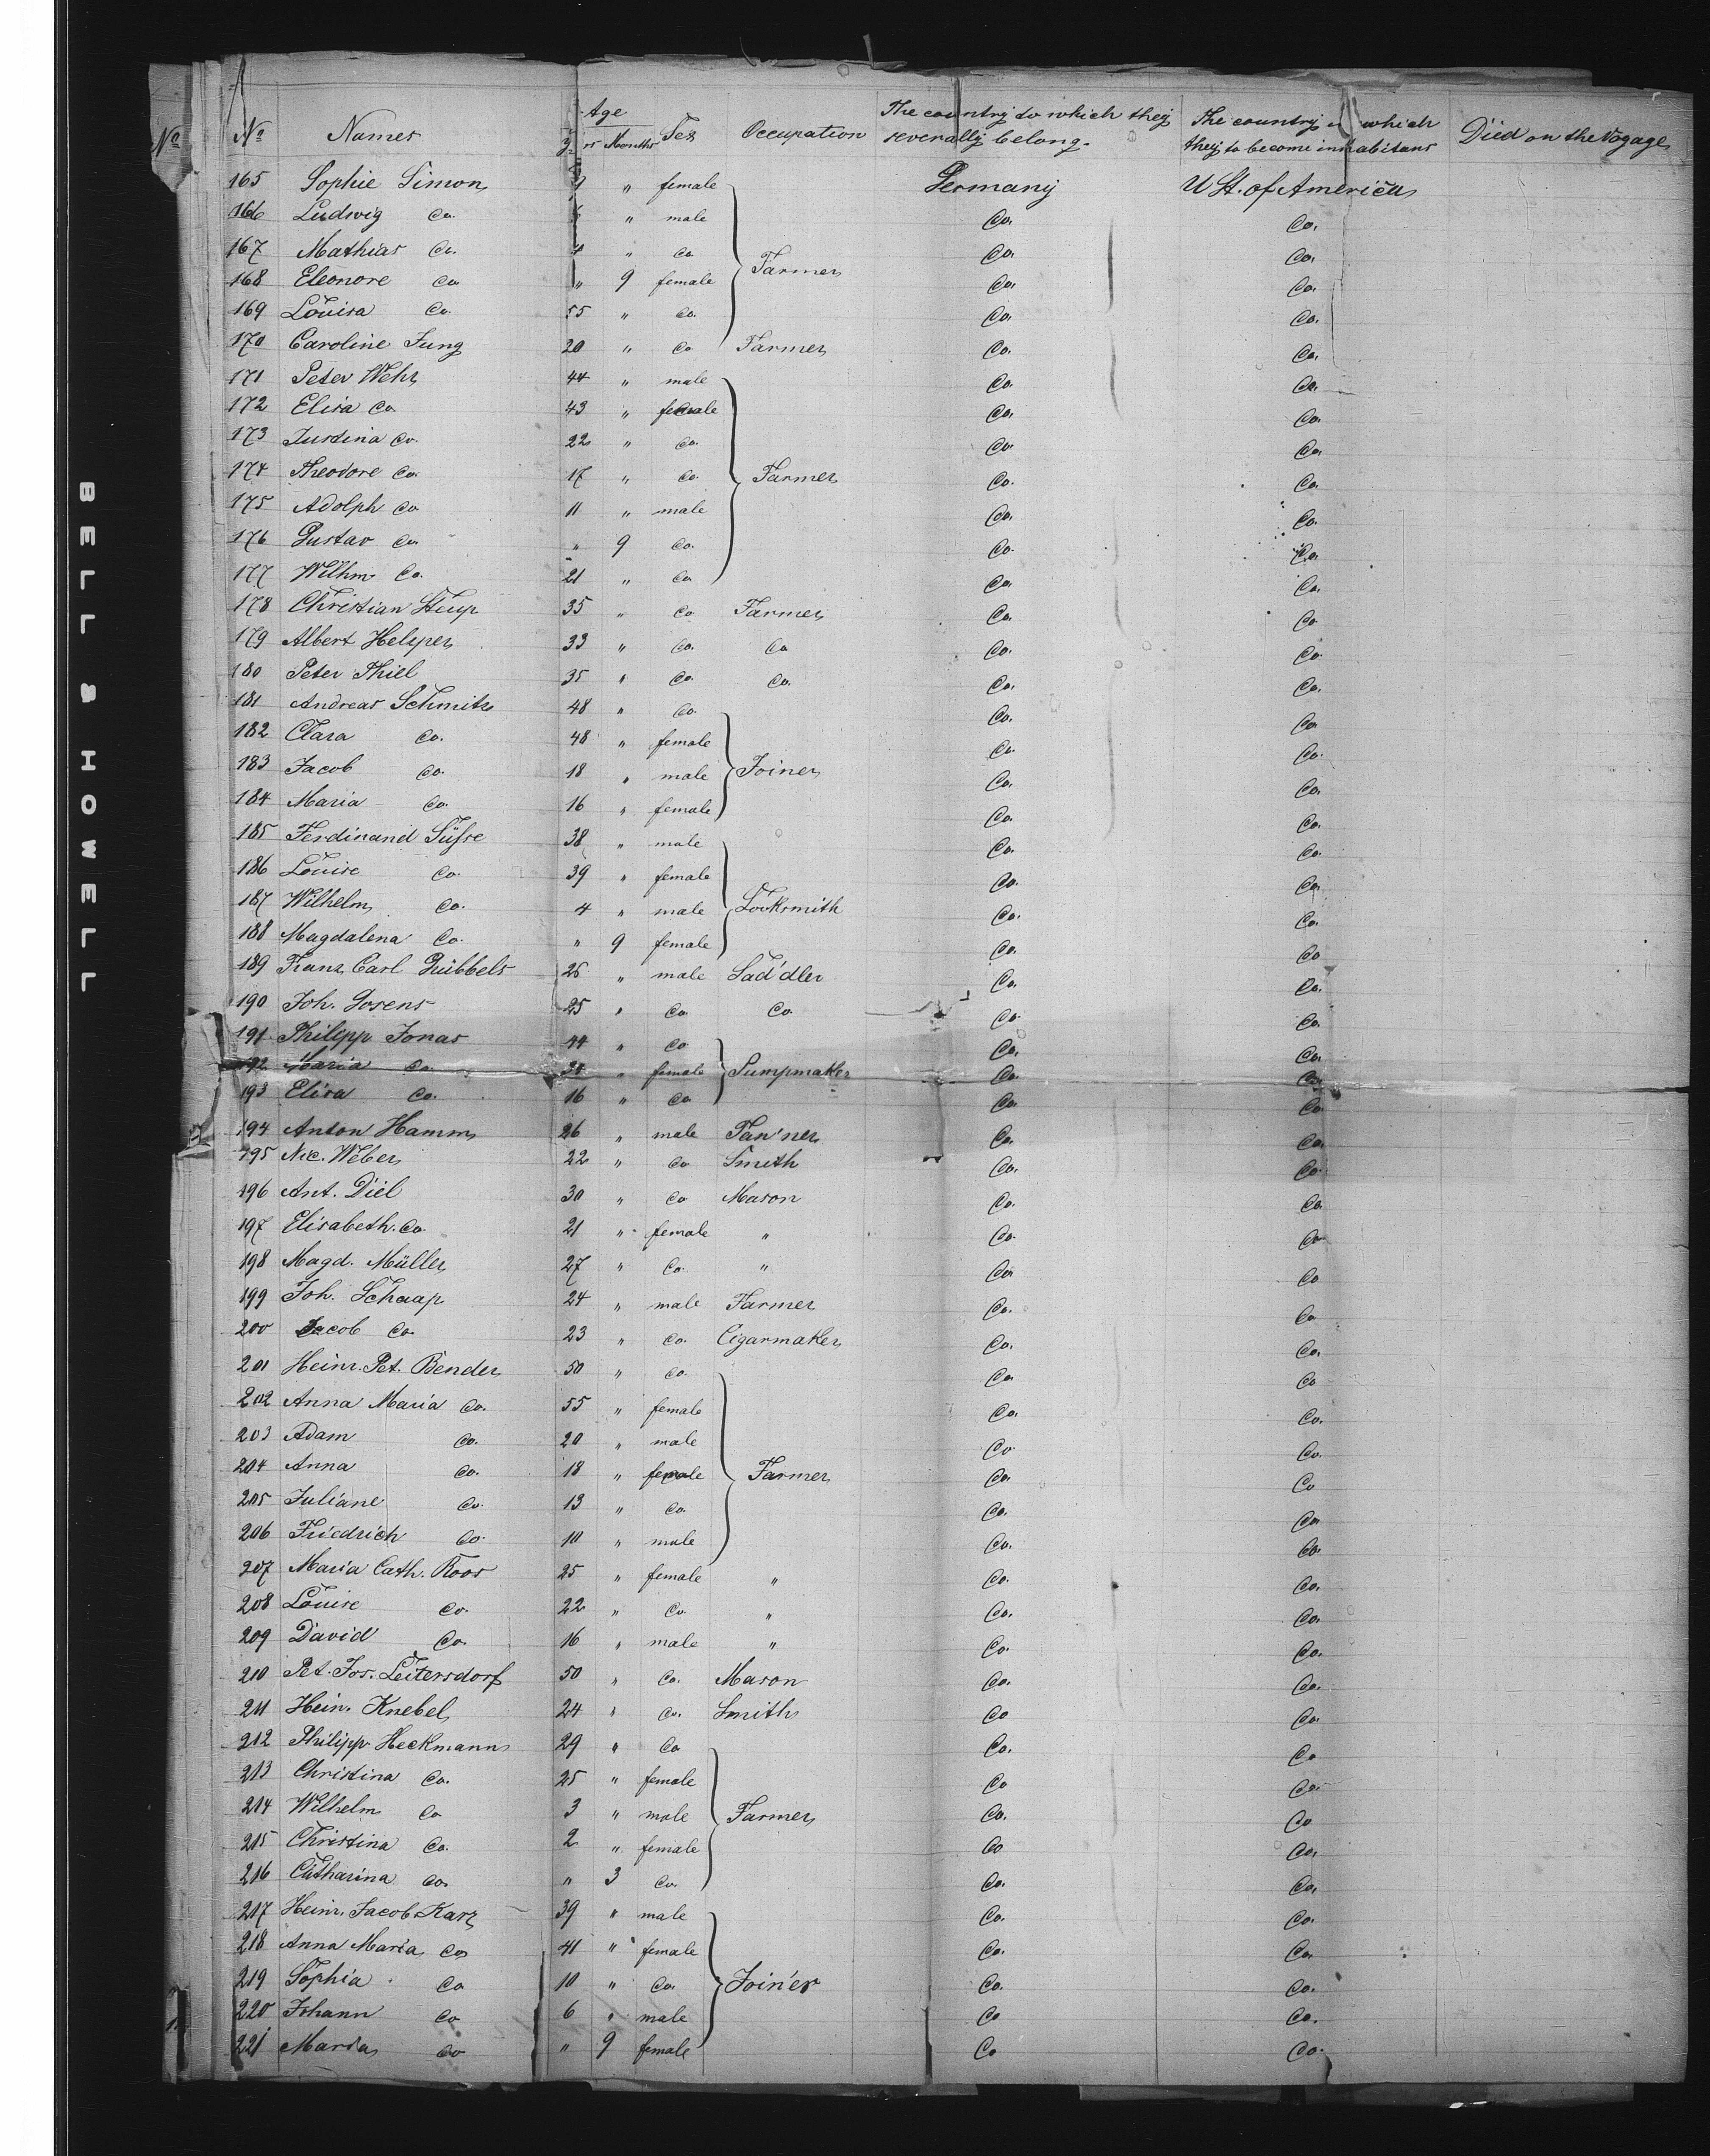 No Names Age Years Months Sex Occupation The country to which they severally belong. The country in which they to become inhabitans Died on the Voyage
165 Sophie Simon " female Germany U St. of America
166 Ludwig Co. " male Co. Co.
167 Mathias Co. " Co. Farmer Co. Co.
168 Eleonore Co. " 9 female Co. Co.
169 Louisa Co. 55 " Co. Co. Co.
170 Caroline Jung 20 " Co Farmer Co. Co.
171 Peter Wehr 44 " male Co. Co.
172 Elisa Co. 43 " female Co. Co.
173 Justina Co. 22 " Co. Co. Co.
174 Theodore Co. 17 " Co. Farmer Co. Co.
175 Adolph Co 11 " male Co. Co.
176 Gustav Co. " 9 Co. Co. Co.
177 Wilhm Co. 21 " Co Co. Co.
178 Christian Steup 35 " Co Farmer Co. Co
179 Albert Helsper 33 " Co. Co Co. Co.
180 Peter Thiel 35 " Co. Co. Co. Co.
181 Andreas Schmitz 48 " Co. Co. Co.
182 Clara Co. 48 " female Co. Co.
183 Jacob Co. 18 " male Joiner Co. Co.
184 Maria Co. 16 " female Co. Co.
185 Ferdinand Süsse 38 " male Co. Co.
186 Louise Co. 39 " female Co. Co.
187 Wilhelm Co. 4 " male Locksmith Co. Co.
188 Magdalena Co. " 9 female Co. Co
189 Franz Carl Gübbels 26 " male Saddler Co. Co.
190 Joh. Gosens 25 " Co. Co. Co. Co.
191 Philipp Jonas 44 " Co Co. Co.
192 Maria Co. " female Pumpmaker Co. Co.
193 Elisa Co. 16 " Co Co. Co.
194 Anton Hamm 26 " male Tanner Co. Co.
195 Nic. Weber 22 " Co Smith Co. Co.
196 Ant. Diel 30 " Co Mason Co. Co.
197 Elisabeth. Co. 21 " female " Co. Co.
198 Magd. Müller 27 " Co. " Co. Co
199 Joh. Schaap 24 " male Farmer Co. Co
200 Jacob Co. 23 " Co. Cigarmaker Co. Co.
201 Heinr. Pet. Bender 50 " Co. Co. Co
202 Anna Maria Co. 55 " female Co. Co.
203 Adam Co. 20 " male Co. Co.
204 Anna Co. 18 " female Farmer Co. Co
205 Juliane Co. 13 " Co. Co. Co.
206 Friedrich Co. 10 " male Co. Co.
207 Maria Cath. Roos 25 " female " Co. Co.
208 Louise Co. 22 " Co. " Co. Co.
209 David Co. 16 " male " Co. Co.
210 Pet. Jos. Leitersdorf 50 " Co. Mason Co. Co.
211 Hein. Knebel 24 " Co. Smith Co Co.
212 Philipp Heckmann 29 " Co Co. Co
213 Christina Co. 25 " female Co Co.
214 Wilhelm Co 3 " male Farmer Co. Co
215 Christina Co. 2 " female Co Co.
216 Catharina Co. " 3 Co. Co. Co.
217 Heinr. Jacob Karz 39 " male Co. Co.
218 Anna Maria Co 41 " female Co. Co.
219 Sophia Co 10 " Co. Joiner Co. Co.
220 Johann Co 6 " male Co Co.
221 Maria Co " 9 female Co Co.
BELL & HOWELL